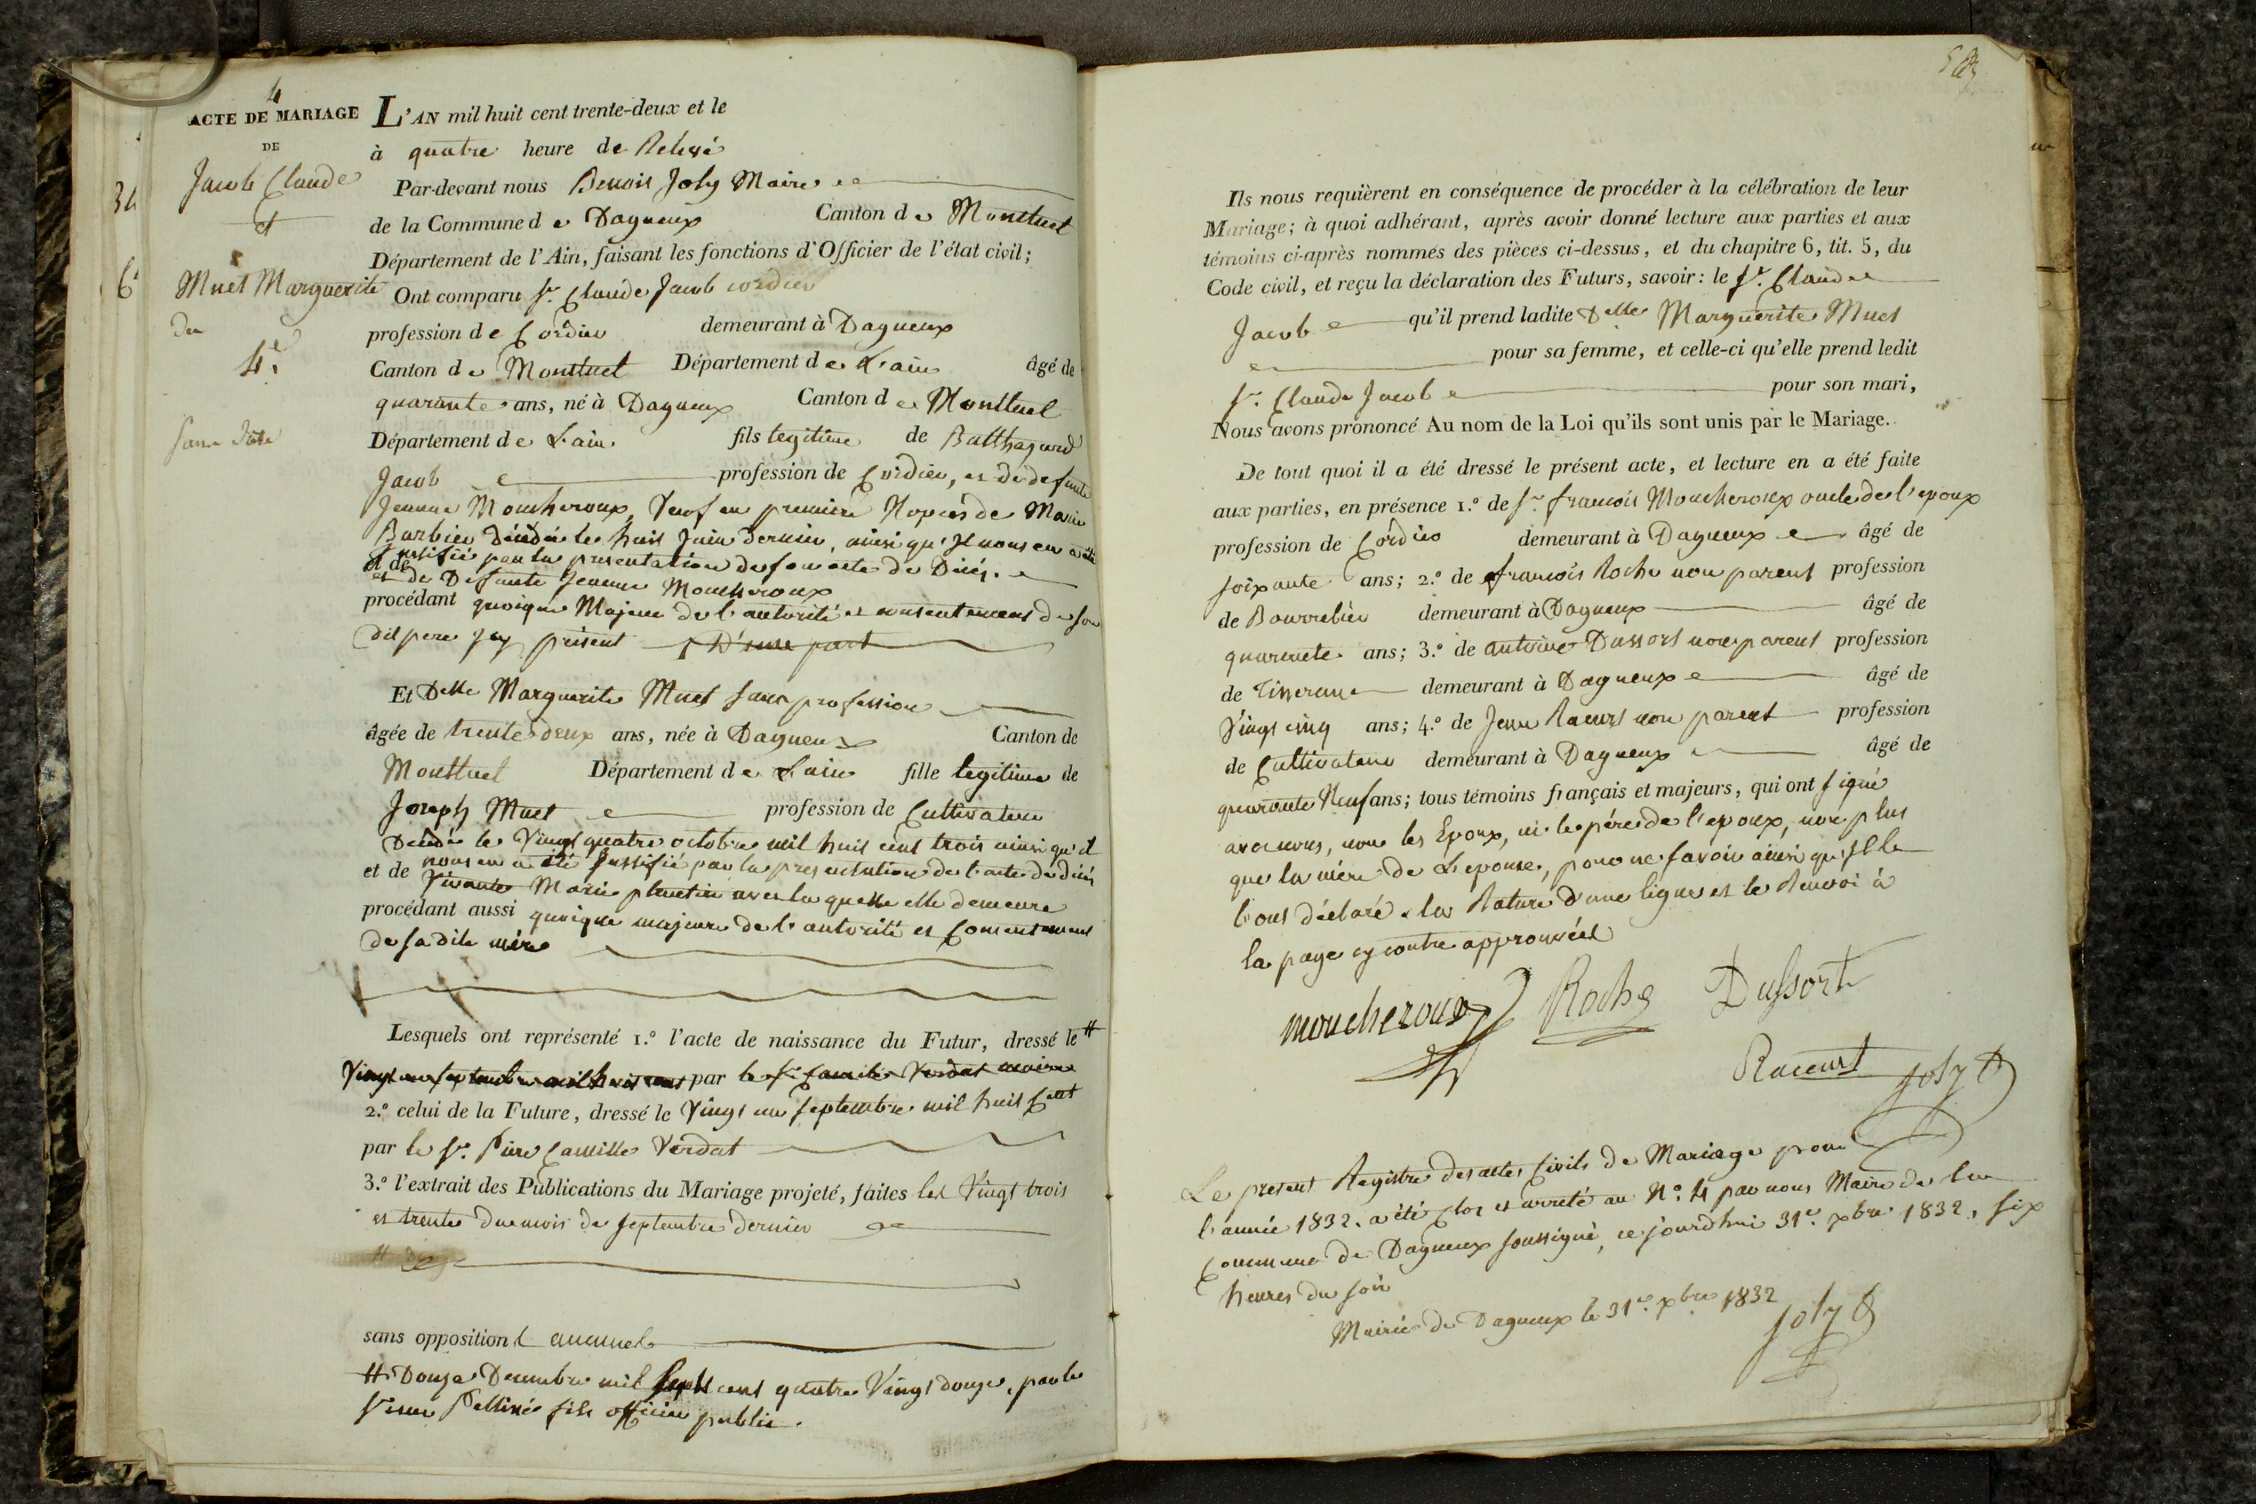 4
ACTE DE MARIAGE
DE
Jacob Claude
et
Muet Marguerite
du
4e.
sans date
34
6
L'AN mil huit cent trente-deux et le
à quatre heure de Relevé
Par-devant nous Benoit Joly Maire
de la Commune de Dagneux Canton de Montluel
Département de l'Ain, faisant les fonctions d'Officier de l'état civil;
Ont comparu Sr. Claude Jacob cordier
profession de Cordier demeurant à Dagneux
Canton de Montluel Département de L'ain âgé de
quarante ans, né à Dagneux Canton de Montluel
Département de L'ain fils legitime de Balthazard
Jacob profession de Cordier, et de defunte
Jeanne Moucheroux, Veuf en premiere Nopces de Marie
Barbier décédée le huit Juin dernier, ainsi qu'Il nous en a été
Justifié par la presentation de son acte de Décés.
et de Defunte Jeanne Moucheroux
procédant quoique Majeur de l'autorité et consentement de son
dit pere Icy présent D'une part
Et Delle Marguerite Muet sans profession
âgée de trente deux ans, née à Dagneux Canton de
Montluel Département de L'ain fille legitime de
Joseph Muet profession de Cultivateur
Décédé le Vingt quatre octobre mil huit cent trois ainsi qu'il
nous en a été Justifié par la presentation de l'acte de décès
et de Vivante Marie plantier avec la quelle elle demeure
procédant aussi quoique majeure de l'autorité et Consentement
de sa dite mère
Lesquels ont représenté 1.º l'acte de naissance du Futur, dressé le #
Vingt un septembre mil huit cent par le sr. Camille Verdat maire
2.º celui de la Future, dressé le Vingt un septembre mil huit Cent
par le Sr. Piere Camille Verdat
3.º l'extrait des Publications du Mariage projeté, faites les Vingt trois
et trente du mois de septembre dernier
sans opposition aucunes
# Douze Decembre mil sept cent quatre Vingt douze, par le
sieur Pellinée fils officier public.
Ils nous requièrent en conséquence de procéder à la célébration de leur
Mariage; à quoi adhérant, après avoir donné lecture aux parties et aux
témoins ci-après nommés des pièces ci-dessus, et du chapitre 6, tit. 5, du
Code civil, et reçu la déclaration des Futurs, savoir: le Sr. Claude
Jacob qu'il prend ladite Delle Marguerite Muet
pour sa femme, et celle-ci qu'elle prend ledit
Sr. Claude Jacob pour son mari,
Nous avons prononcé Au nom de la Loi qu'ils sont unis par le Mariage.
De tout quoi il a été dressé le présent acte, et lecture en a été faite
aux parties, en présence 1.º de Sr. francois Moucheroux oncle de l'epoux
profession de Cordier demeurant à Dagneux âgé de
soixante ans; 2.º de francois Roche non parent profession
de Bourrelier demeurant à Dagneux âgé de
quarente ans; 3.º de antoine Dussort non parent profession
de Tisseran demeurant à Dagneux âgé de
Vingt cinq ans; 4.º de Jean Racurt non parent profession
de Cultivateur demeurant à Dagneux âgé de
quarante Neuf ans; tous témoins français et majeurs, qui ont signé
avec nous, non les Epoux, ni le pére de l'epoux, non plus
que la mére de L'epouse, pour ne savoir ainsi qu'Il le
l'ont déclaré. la Rature d'une ligne et le Renvoi à
la page cy contre approuvées
moucheroux Roche Dussort
Racurt Joly
Le present Registre des actes Civils de Mariage pour
l'année 1832. a été Clos et arreté au N.º 4 par nous Maire de la
Commune de Dagneux soussigné, ce jourdhui 31e. xbre 1832, six
heures du soir
Mairie de Dagneux le 31e. xbre 1832
Joly